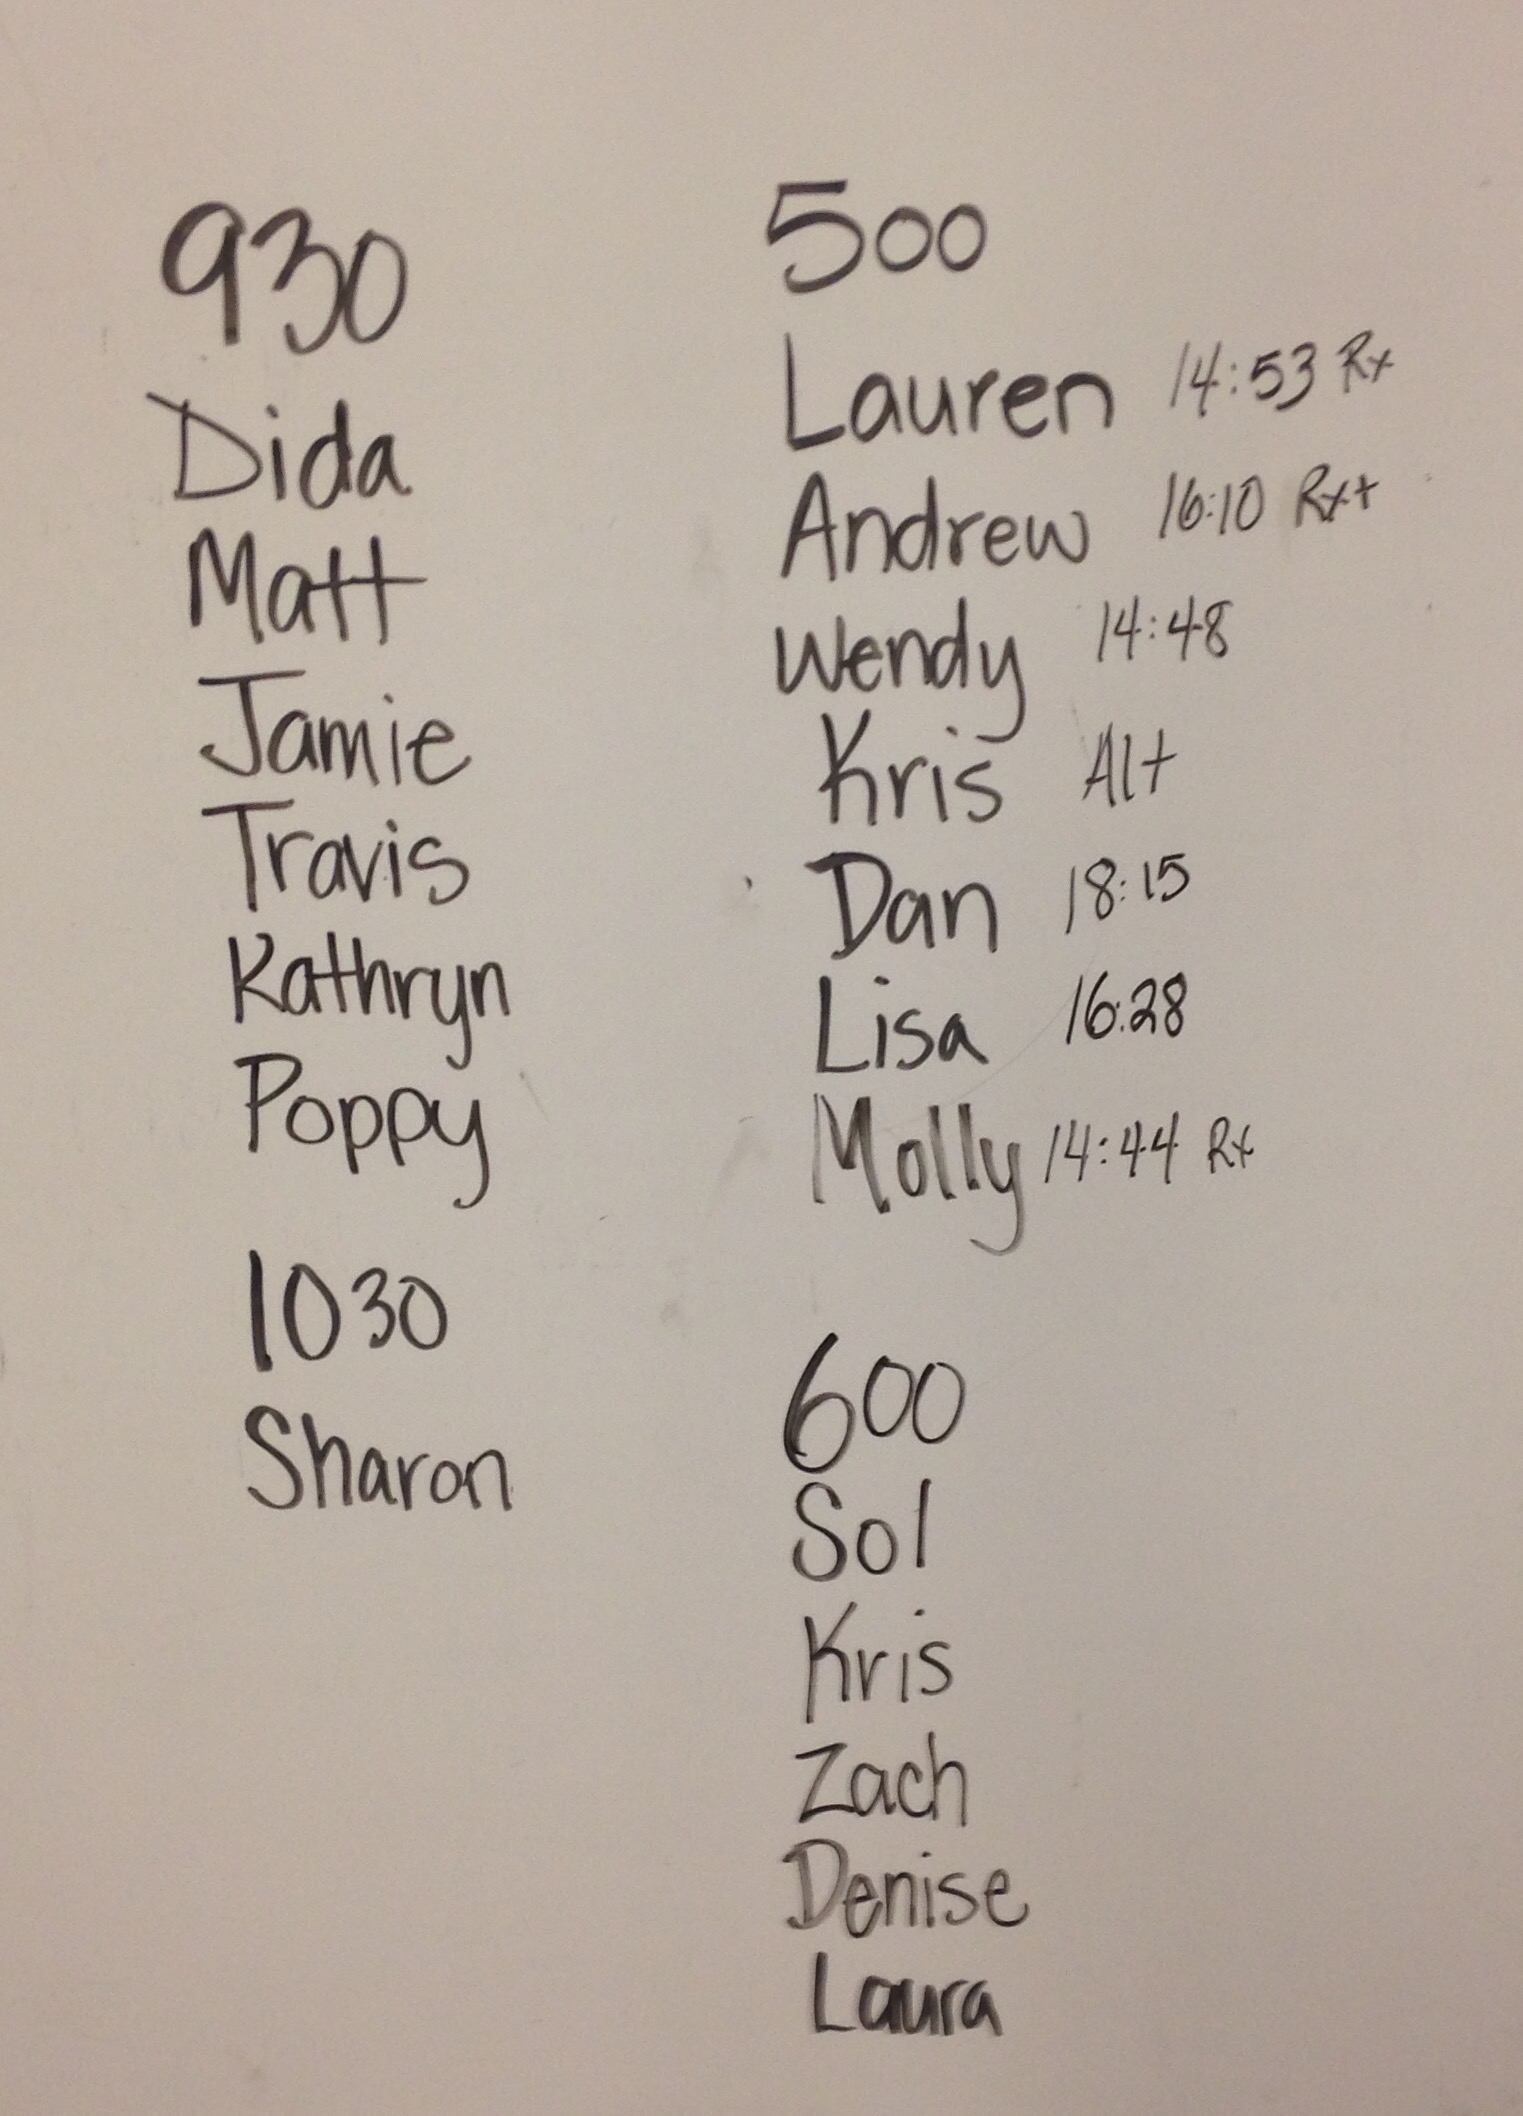 930
Dida
Matt
Jamie
Travis
Kathryn
Poppy
1030
Sharon
500
Lauren 14:53 Rx
Andrew 16:10 Rx+
Wendy 14:48
Kris Alt
Dan 18:15
Lisa 16:28
Molly 14:44 Rx
600
Sol
Kris
Zach
Denise
Laura